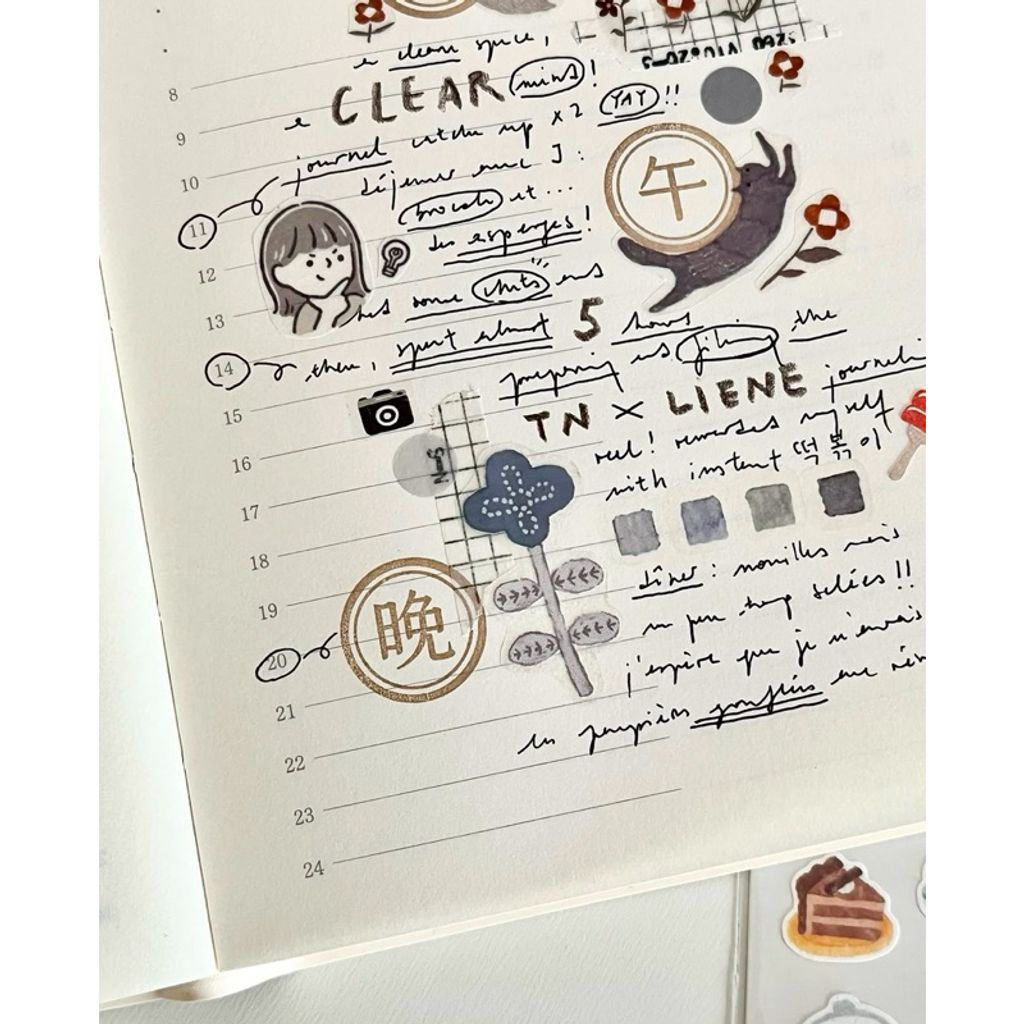 a clean space,
a CLEAR mind!
journal catch up x2 YAY!!
déjeuner avec J:
brocoli et...
des asperges!
had some chits and
then, spent almost 5 hours
preparing and filming the
TN x LIENE journaling
reel! rewarded myself
with instant 떡볶이
dîner: nouilles mais
un peu trop salées!!
j'espère que je n'aurais
les paupières gonflées
午
晚
8
9
10
11
12
13
14
15
16
17
18
19
20
21
22
23
24